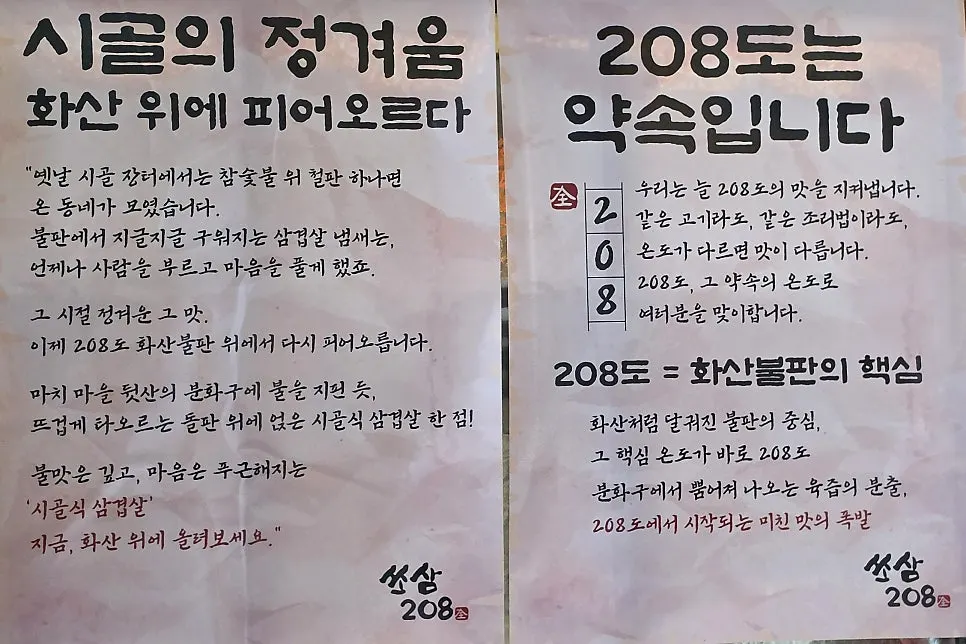 시골의 정겨움
화산 위에 피어오르다
"옛날 시골 장터에서는 참숯불 위 철판 하나면
온 동네가 모였습니다.
불판에서 지글지글 구워지는 삼겹살 냄새는,
언제나 사람을 부르고 마음을 풀게 했죠.
그 시절 정겨운 그 맛.
이제 208도 화산불판 위에서 다시 피어오릅니다.
마치 마을 뒷산의 분화구에 불을 지핀 듯,
뜨겁게 타오르는 돌판 위에 얹은 시골식 삼겹살 한 점!
불맛은 깊고, 마음은 푸근해지는
'시골식 삼겹살'
지금, 화산 위에 올려보세요."
쏘삼
208
208도는
약속입니다
208
우리는 늘 208도의 맛을 지켜냅니다.
같은 고기라도, 같은 조리법이라도,
온도가 다르면 맛이 다릅니다.
208도, 그 약속의 온도로
여러분을 맞이합니다.
208도 = 화산불판의 핵심
화산처럼 달궈진 불판의 중심,
그 핵심 온도가 바로 208도
분화구에서 뿜어져 나오는 육즙의 분출,
208도에서 시작되는 미친 맛의 폭발
쏘삼
208